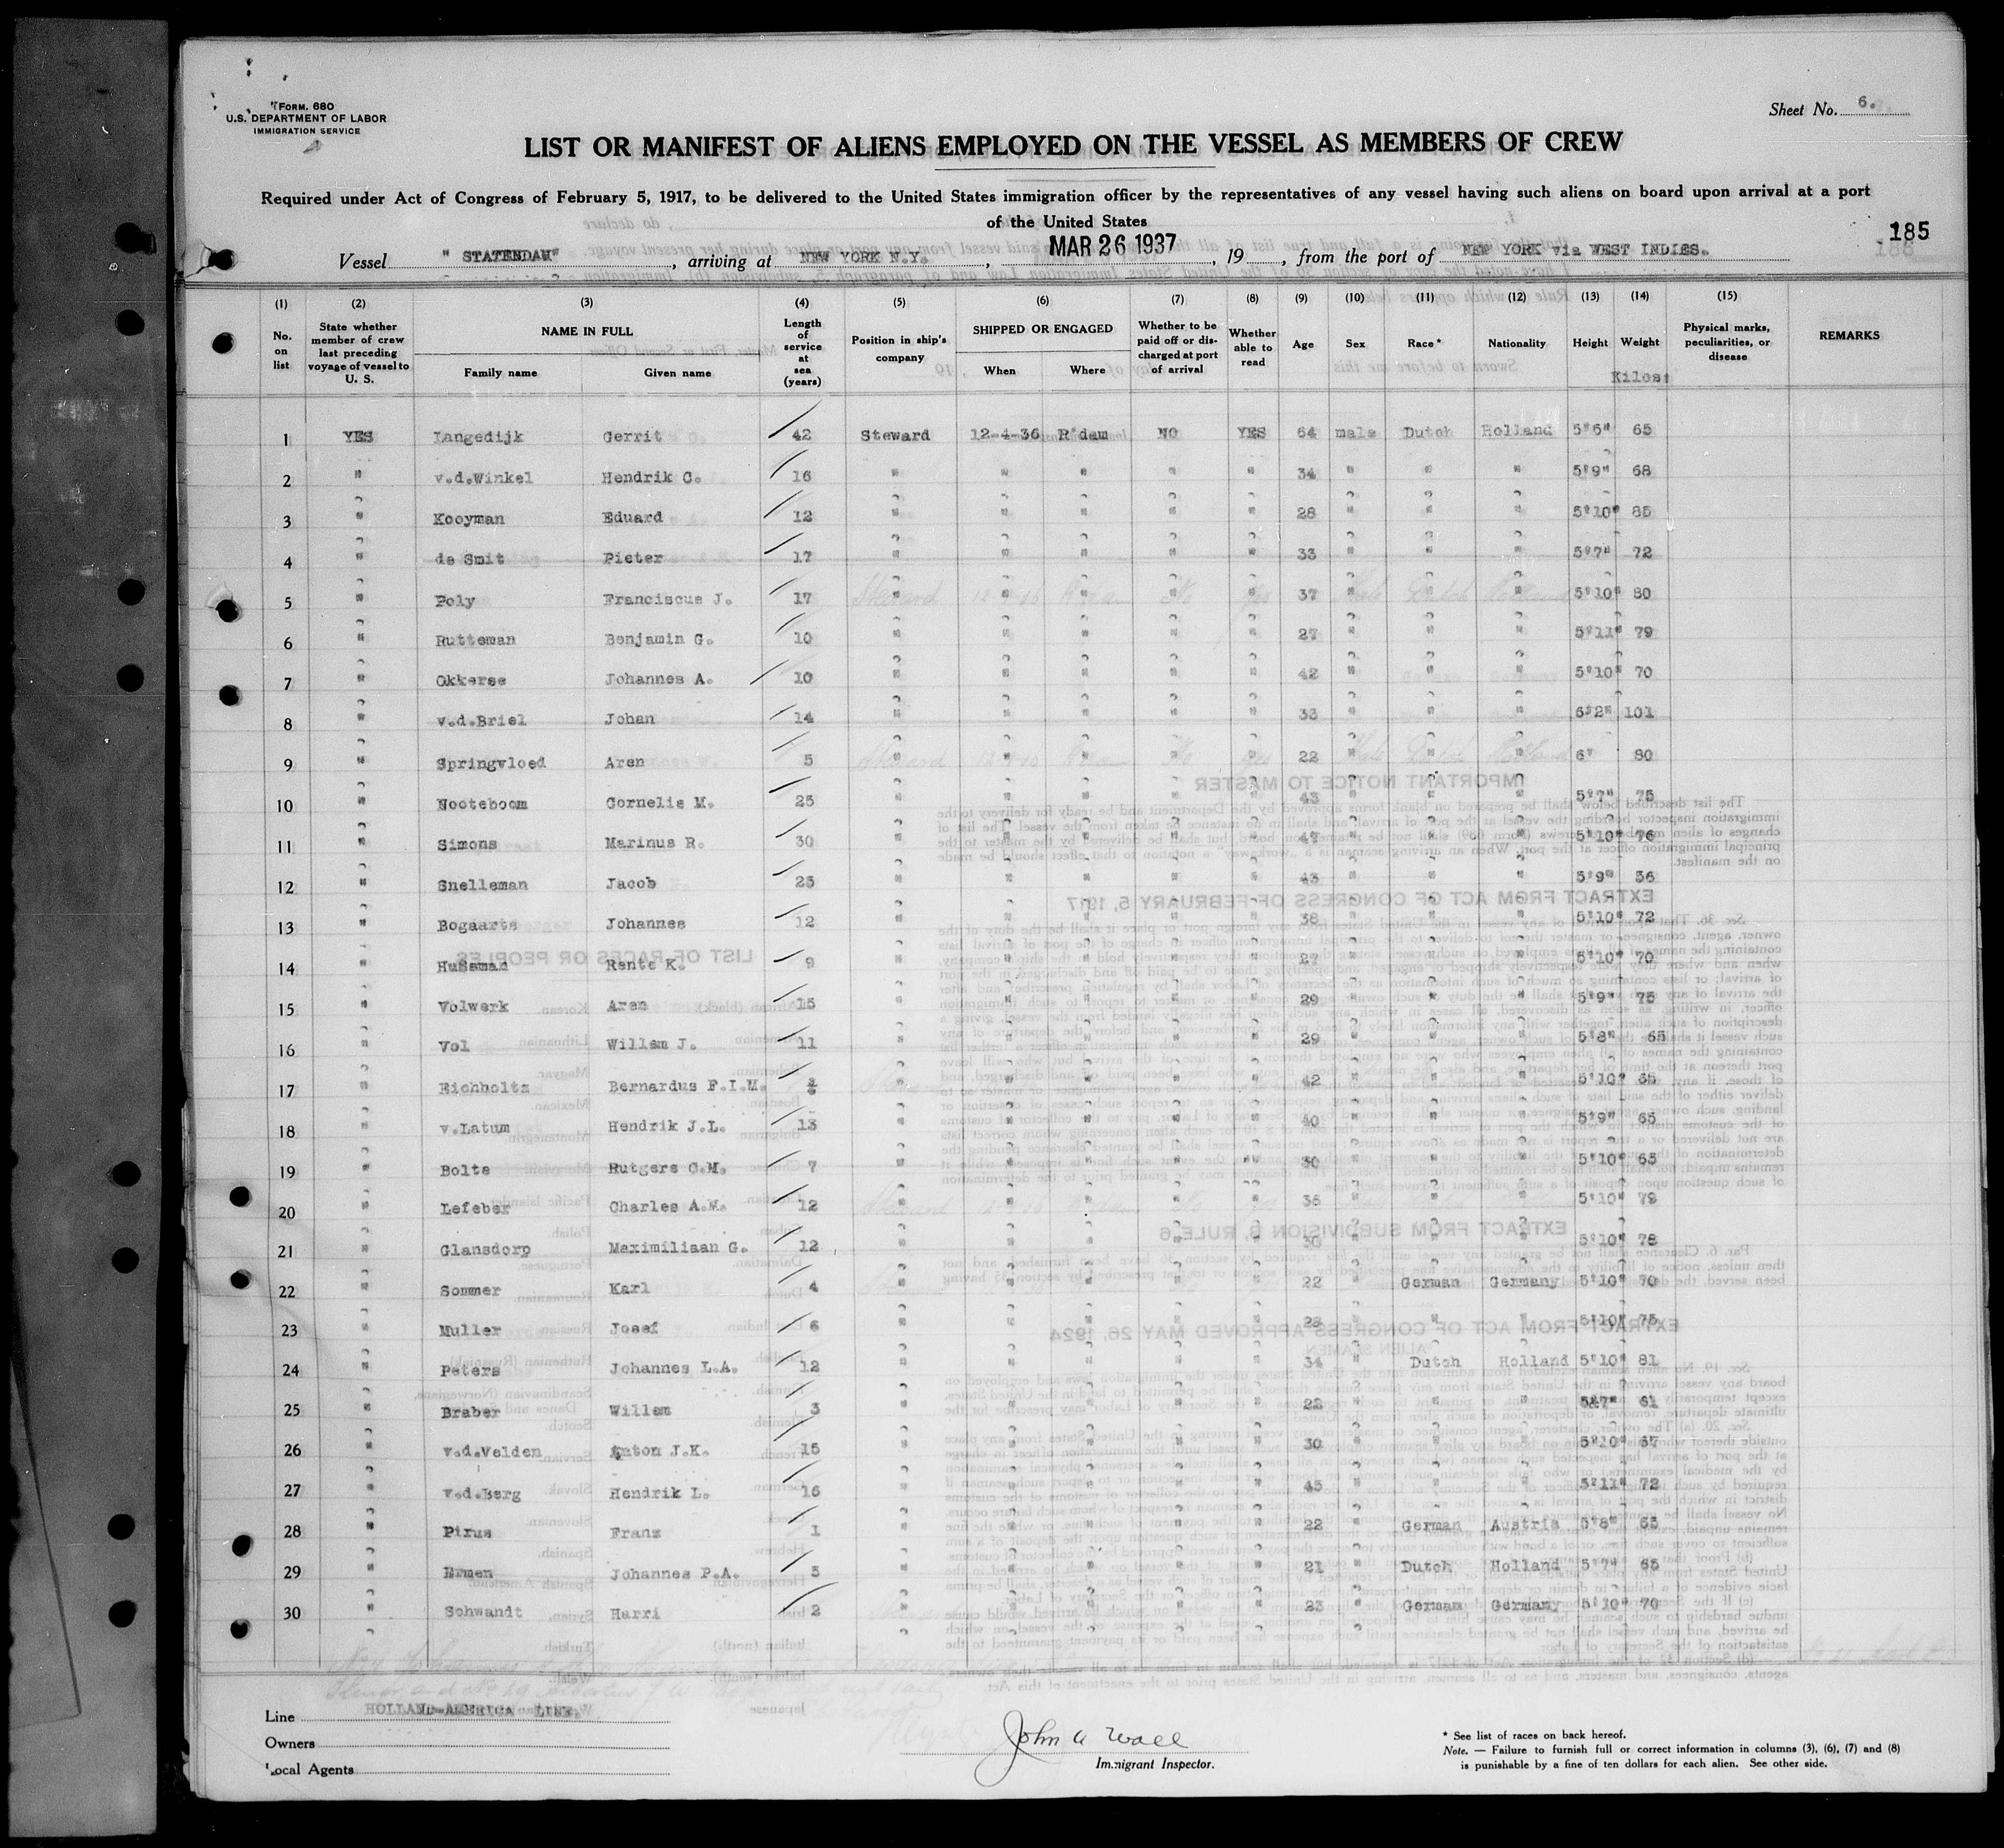 FORM. 680
U.S. DEPARTMENT OF LABOR
IMMIGRATION SERVICE
Sheet No. 6.
LIST OR MANIFEST OF ALIENS EMPLOYED ON THE VESSEL AS MEMBERS OF CREW
Required under Act of Congress of February 5, 1917, to be delivered to the United States immigration officer by the representatives of any vessel having such aliens on board upon arrival at a port
of the United States
185
Vessel " STATENDAM" , arriving at NEW YORK N.Y. , MAR 26 1937 , 19 , from the port of NEW YORK via WEST INDIES.
(1) (2) (3) (4) (5) (6) (7) (8) (9) (10) (11) (12) (13) (14) (15)
No. on list | State whether member of crew last preceding voyage of vessel to U. S. | NAME IN FULL Family name Given name | Length of service at sea (years) | Position in ship's company | SHIPPED OR ENGAGED When Where | Whether to be paid off or discharged at port of arrival | Whether able to read | Age | Sex | Race * | Nationality | Height | Weight Kilos: | Physical marks, peculiarities, or disease | REMARKS
1 YES Langedijk Gerrit 42 Steward 12-4-36 R'dam NO YES 64 male Dutch Holland 5'6" 65
2 " v.d.Winkel Hendrik C. 16 " " " " " 34 " " " 5'9" 68
3 " Kooyman Eduard 12 " " " " " 28 " " " 5'10" 85
4 " de Smit Pieter 17 " " " " " 33 " " " 5'7" 72
5 " Poly Franciscus J. 17 " " " " " 37 " " " 5'10" 80
6 " Rutteman Benjamin G. 10 " " " " " 27 " " " 5'11" 79
7 " Okkerse Johannes A. 10 " " " " " 42 " " " 5'10" 70
8 " v.d.Briel Johan 14 " " " " " 33 " " " 6'2" 101
9 " Springvloed Aren 5 " " " " " 22 " " " 6' 80
10 " Nooteboom Cornelis M. 25 " " " " " 43 " " " 5'7" 75
11 " Simons Marinus R. 30 " " " " " 47 " " " 5'10" 76
12 " Snelleman Jacob 25 " " " " " 43 " " " 5'9" 56
13 " Bogaarts Johannes 12 " " " " " 38 " " " 5'10" 72
14 " Rente K. 9 " " " " " 27 " " " 5'10" 70
15 " Volwerk Aren 15 " " " " " 29 " " " 5'9" 75
16 " Vol Willem J. 11 " " " " " 29 " " " 5'8" 65
17 " Eichholtz Bernardus F.I.M. " " " " " 42 " " " 5'10" 65
18 " v.Latum Hendrik J.L. 13 " " " " " 40 " " " 5'9" 65
19 " Bolte Rutgers C.M. 7 " " " " " 30 " " " 5'10" 65
20 " Lefeber Charles A.M. 12 " " " " " 36 " " " 5'10" 79
21 " Glansdorp Maximiliaan G. 12 " " " " " 30 " " " 5'10" 78
22 " Sommer Karl 4 " " " " " 22 " German Germany 5'10" 70
23 " Muller Josef 6 " " " " " 28 " " " 5'10" 75
24 " Peters Johannes L.A. 12 " " " " " 34 " Dutch Holland 5'10" 81
25 " Braber Willem 3 " " " " " 22 " " " 5'7" 61
26 " v.d.Velden Anton J.K. 15 " " " " " 30 " " " 5'10" 67
27 " v.d.Berg Hendrik L. 16 " " " " " 45 " " " 5'11" 72
28 " Pirus Franz 1 " " " " " 22 " German Austria 5'8" 65
29 " Ermen Johannes P.A. 5 " " " " " 21 " Dutch Holland 5'7" 65
30 " Schwandt Harri 2 " " " " " 23 " German Germany 5'10" 70
Line HOLLAND-AMERICA LINE.
Owners
Local Agents
John A Wall
Immigrant Inspector.
* See list of races on back hereof.
Note. — Failure to furnish full or correct information in columns (3), (6), (7) and (8)
is punishable by a fine of ten dollars for each alien. See other side.